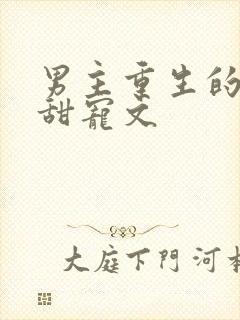 男主重生的
甜寵文
大庭下門河本